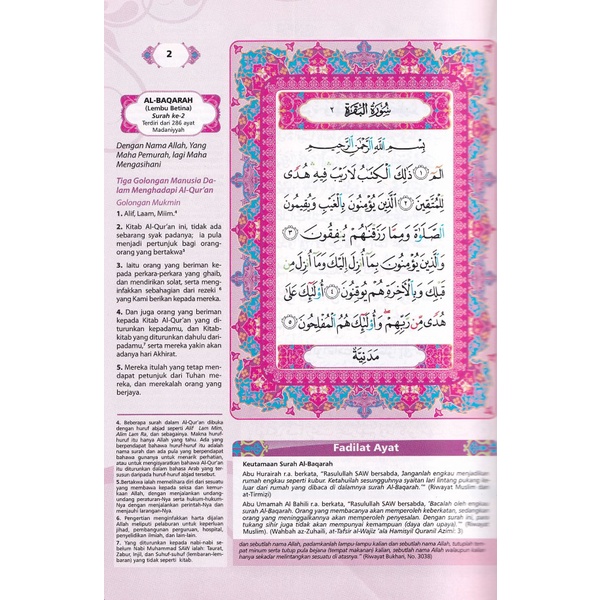 2
AL-BAQARAH
(Lembu Betina)
Surah ke-2
Terdiri dari 286 ayat
Madaniyyah
Dengan Nama Allah, Yang
Maha Pemurah, lagi Maha
Mengasihani
Tiga Golongan Manusia Da-
lam Menghadapi Al-Qur'an
Golongan Mukmin
1. Alif, Laam, Miim.⁴
2. Kitab Al-Qur'an ini, tidak ada
sebarang syak padanya; ia pula
menjadi pertunjuk bagi orang-
orang yang bertakwa⁵
3. Iaitu orang yang beriman ke-
pada perkara-perkara yang ghaib,
dan mendirikan solat, serta meng-
infakkan sebahagian dari rezeki ⁶
yang Kami berikan kepada mereka.
4. Dan juga orang yang beriman
kepada Kitab Al-Qur'an yang di-
turunkan kepadamu, dan Kitab-
kitab yang diturunkan dahulu dari-
padamu,⁷ serta mereka yakin akan
adanya hari Akhirat.
5. Mereka itulah yang tetap men-
dapat petunjuk dari Tuhan me-
reka, dan merekalah orang yang
berjaya.
4. Beberapa surah dalam Al-Qur'an dibuka
dengan huruf abjad seperti Alif Lam Mim,
Alim Lam Ra, dan sebagainya. Makna huruf-
huruf itu hanya Allah yang tahu. Ada yang
berpendapat bahawa huruf-huruf itu adalah
nama surah dan ada pula yang berpendapat
bahawa gunanya untuk menarik perhatian,
atau untuk mengisyaratkan bahawa Al-Qur'an
itu diturunkan dalam bahasa Arab yang ter-
susun daripada huruf-huruf abjad tersebut.
5.Bertakwa ialah memelihara diri dari sesuatu
yang membawa kepada seksa dan kemur-
kaan Allah, dengan menjalankan undang-
undang peraturan-Nya serta hukum-hukum-
Nya dengan menjalankan perintah-Nya dan
menjauhi larangan-Nya
6. Pengertian menginfakkan harta dijalan
Allah meliputi pelaburan untuk keperluan
jihad, pembangunan perguruan, hospital,
penyelidikan ilmiah, dan lain-lain.
7. Yang diturunkan kepada nabi-nabi se-
belum Nabi Muhammad SAW ialah: Taurat,
Zabur, Injil, dan Suhuf-suhuf (lembaran-lem-
baran) yang tidak seperti kitab.
سُورَةُ البَقَرَةِ ٢
بِسْمِ اللَّهِ الرَّحْمَٰنِ الرَّحِيمِ
الٓمٓ ١ ذَٰلِكَ الْكِتَٰبُ لَا رَيْبَ ۛ فِيهِ ۛ هُدًى
لِّلْمُتَّقِينَ ٢ الَّذِينَ يُؤْمِنُونَ بِالْغَيْبِ وَيُقِيمُونَ
الصَّلَوٰةَ وَمِمَّا رَزَقْنَٰهُمْ يُنفِقُونَ ٣
وَالَّذِينَ يُؤْمِنُونَ بِمَآ أُنزِلَ إِلَيْكَ وَمَآ أُنزِلَ مِن
قَبْلِكَ وَبِالْآخِرَةِ هُمْ يُوقِنُونَ ٤ أُولَٰٓئِكَ عَلَىٰ
هُدًى مِّن رَّبِّهِمْ ۖ وَأُولَٰٓئِكَ هُمُ الْمُفْلِحُونَ ٥
مَدَنِيَّة
Fadilat Ayat
Keutamaan Surah Al-Baqarah
Abu Hurairah r.a. berkata, "Rasulullah SAW bersabda, Janganlah engkau menjadikan
rumah engkau seperti kubur. Ketahuilah sesungguhnya syaitan lari lintang pukang ke-
luar dari rumah yang dibaca di dalamnya surah Al-Baqarah." (Riwayat Muslim dan
at-Tirmizi)
Abu Umamah Al Bahili r.a. berkata, "Rasulullah SAW bersabda, "Bacalah oleh engkau
surah Al-Baqarah. Orang yang membacanya akan memperoleh keberkatan, sedangkan
orang yang meninggalkannya akan memperoleh penyesalan. Dengan surah ini, para
tukang sihir juga tidak akan mempunyai kemampuan (daya dan upaya)." (Riwayat
Muslim). (Wahbah az-Zuhaili, at-Tafsir al-Wajiz 'ala Hamisyil Quranil Azimi: 3)
dan sebutlah nama Allah, padamkanlah lampu-lampu kalian dan sebutlah nama Allah, tutuplah tem-
pat minum serta tutup pula bejana (tempat makanan) kalian, sebutlah nama Allah walaupun kalian
hanya sekedar melintangkan sesuatu di atasnya." (Riwayat Bukhari, No. 3038)